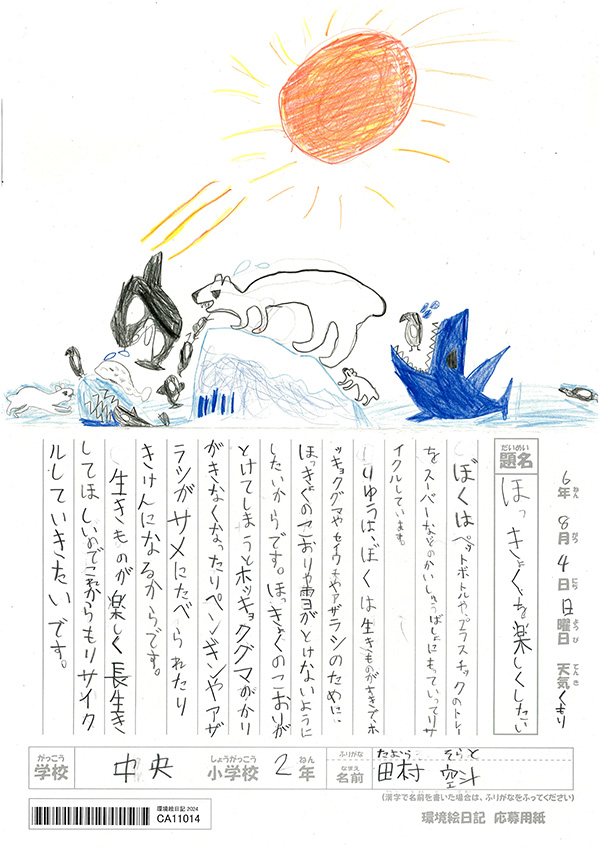 6年 8月 4日 日曜日 天気 くもり
ねん がつ にち ようび てんき
だいめい
題名 ほっきょくを楽しくしたい
ぼくはペットボトルやプラスチックのトレー
をスーパーなどのかいしゅうばしょにもっていってリサ
イクルしています。
りゆうは、ぼくは生きものがすきで、ホ
ッキョクグマやセイウチやアザラシのために、
ほっきょくのこおりや雪がとけないように
したいからです。ほっきょくのこおりが
とけてしまうとホッキョクグマのかり
がきなくなったりペンギンやアザ
ラシがサメにたべられたり
きけんになるからです。
生きものが楽しく長生き
してほしいのでこれからもリサイク
ルしていきたいです。
がっこう しょうがっこう ねん ふりがな たむら そらと
学校 中央 小学校 2年 なまえ 名前 田村 空斗
(漢字で名前を書いた場合は、ふりがなをふってください)
環境絵日記 2024
CA11014
環境絵日記 応募用紙